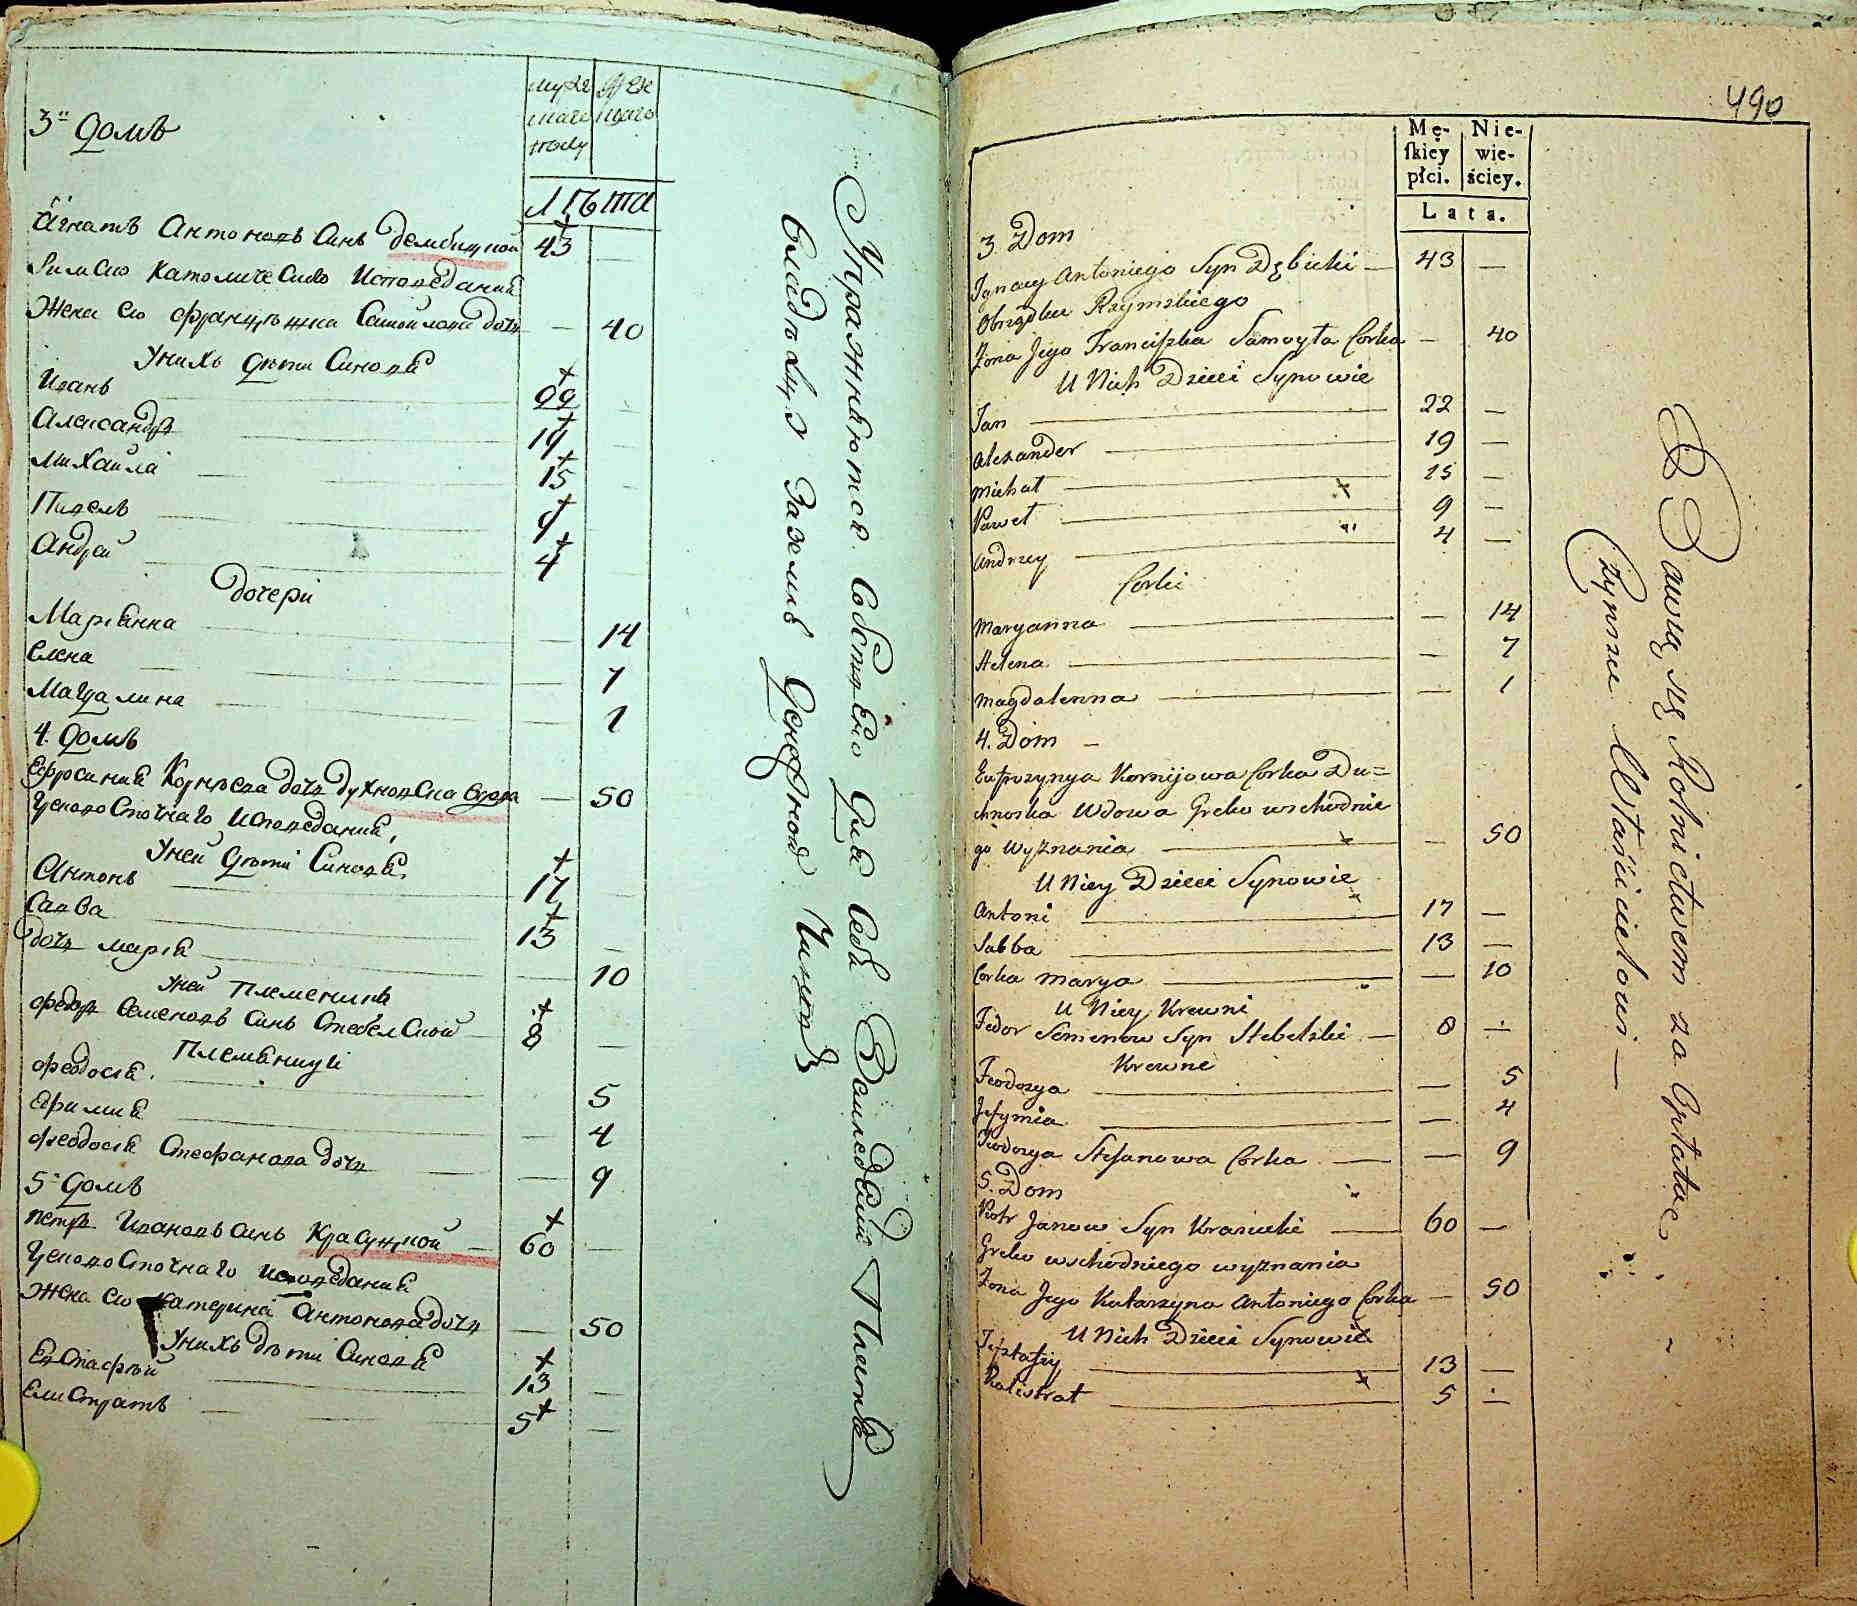 муже
ЖЕн
скаго
скаго
полу
лѣта
3й домъ
Игнатъ Антоновъ синъ Дембицкой 43 —
Римско католическо исповеданія
Жена его Францѣшка Самойлова дочъ — 40
У нихъ дѣти Синовя
Иванъ 22 —
Александръ 19 —
Михайла 15 —
Павелъ 9 —
Андрей 4 —
Дочери
Маріянна — 14
Елена — 7
Магдалина — 1
4. домъ
Ефросинія Корнѣева дочъ вдова — 50
Грековосточнаго исповеданія,
У ней дѣти Синовя
Антонъ 17 —
Савва 13 —
Дочъ Марія — 10
У ней племеникъ
Федоръ Семеновъ синъ Стебелской 8 —
Племяници
Феодосія 5
Ефимия — 4
Феодосія Стефанова дочъ — 9
5й домъ
Петръ Ивановъ синъ Красуцкой — 60 —
Грековосточнаго исповеданія
Жена его Катерина Антонова дочъ — 50
У нихъ дѣти Синовя
Евстафѣй 13 —
Елистратъ 5 —
Упражняются собственно для себя
владѣльцу за земли
490
Mę-
ſkiey
płci.
Nie-
wie-
ściey.
Lata.
3. Dom
Ignacy Antoniego Syn Dębicki — 43 —
Obrządku Rzymskiego
Żona Jego Franciszka Samoyła Corka — 40
U Nich Dzieci Synowie
Jan 22 —
Alexander 19 —
Michał 15 —
Paweł 9 —
Andrzey 4 —
Corki
Maryanna — 14
Helena — 7
Magdalenna — 1
4. Dom —
Eufrozynya Kornijowa Corka Du=
chnoska Wdowa Greko wschodnie
go Wyznania — 50
U Niey Dzieci Synowie
Antoni 17 —
Sabba 13 —
Corka Marya — 10
U Niey Krewni
Fedor Semenow Syn Stebelski — 8 —
Krewne
Feodozya — 5
Jefymia — 4
Feodozya Stefanowa Corka — 9
5. Dom
Piotr Janow Syn Krasucki 60 —
Greko wschodniego wyznania
Żona Jego Katarzyna Antoniego Corka — 50
U Nich Dzieci Synowie
Jefstafiy 13 —
Kalistrat 5 —
Bawią się Rolnictwem za Opłatac
Czynsze Właścicielowi —